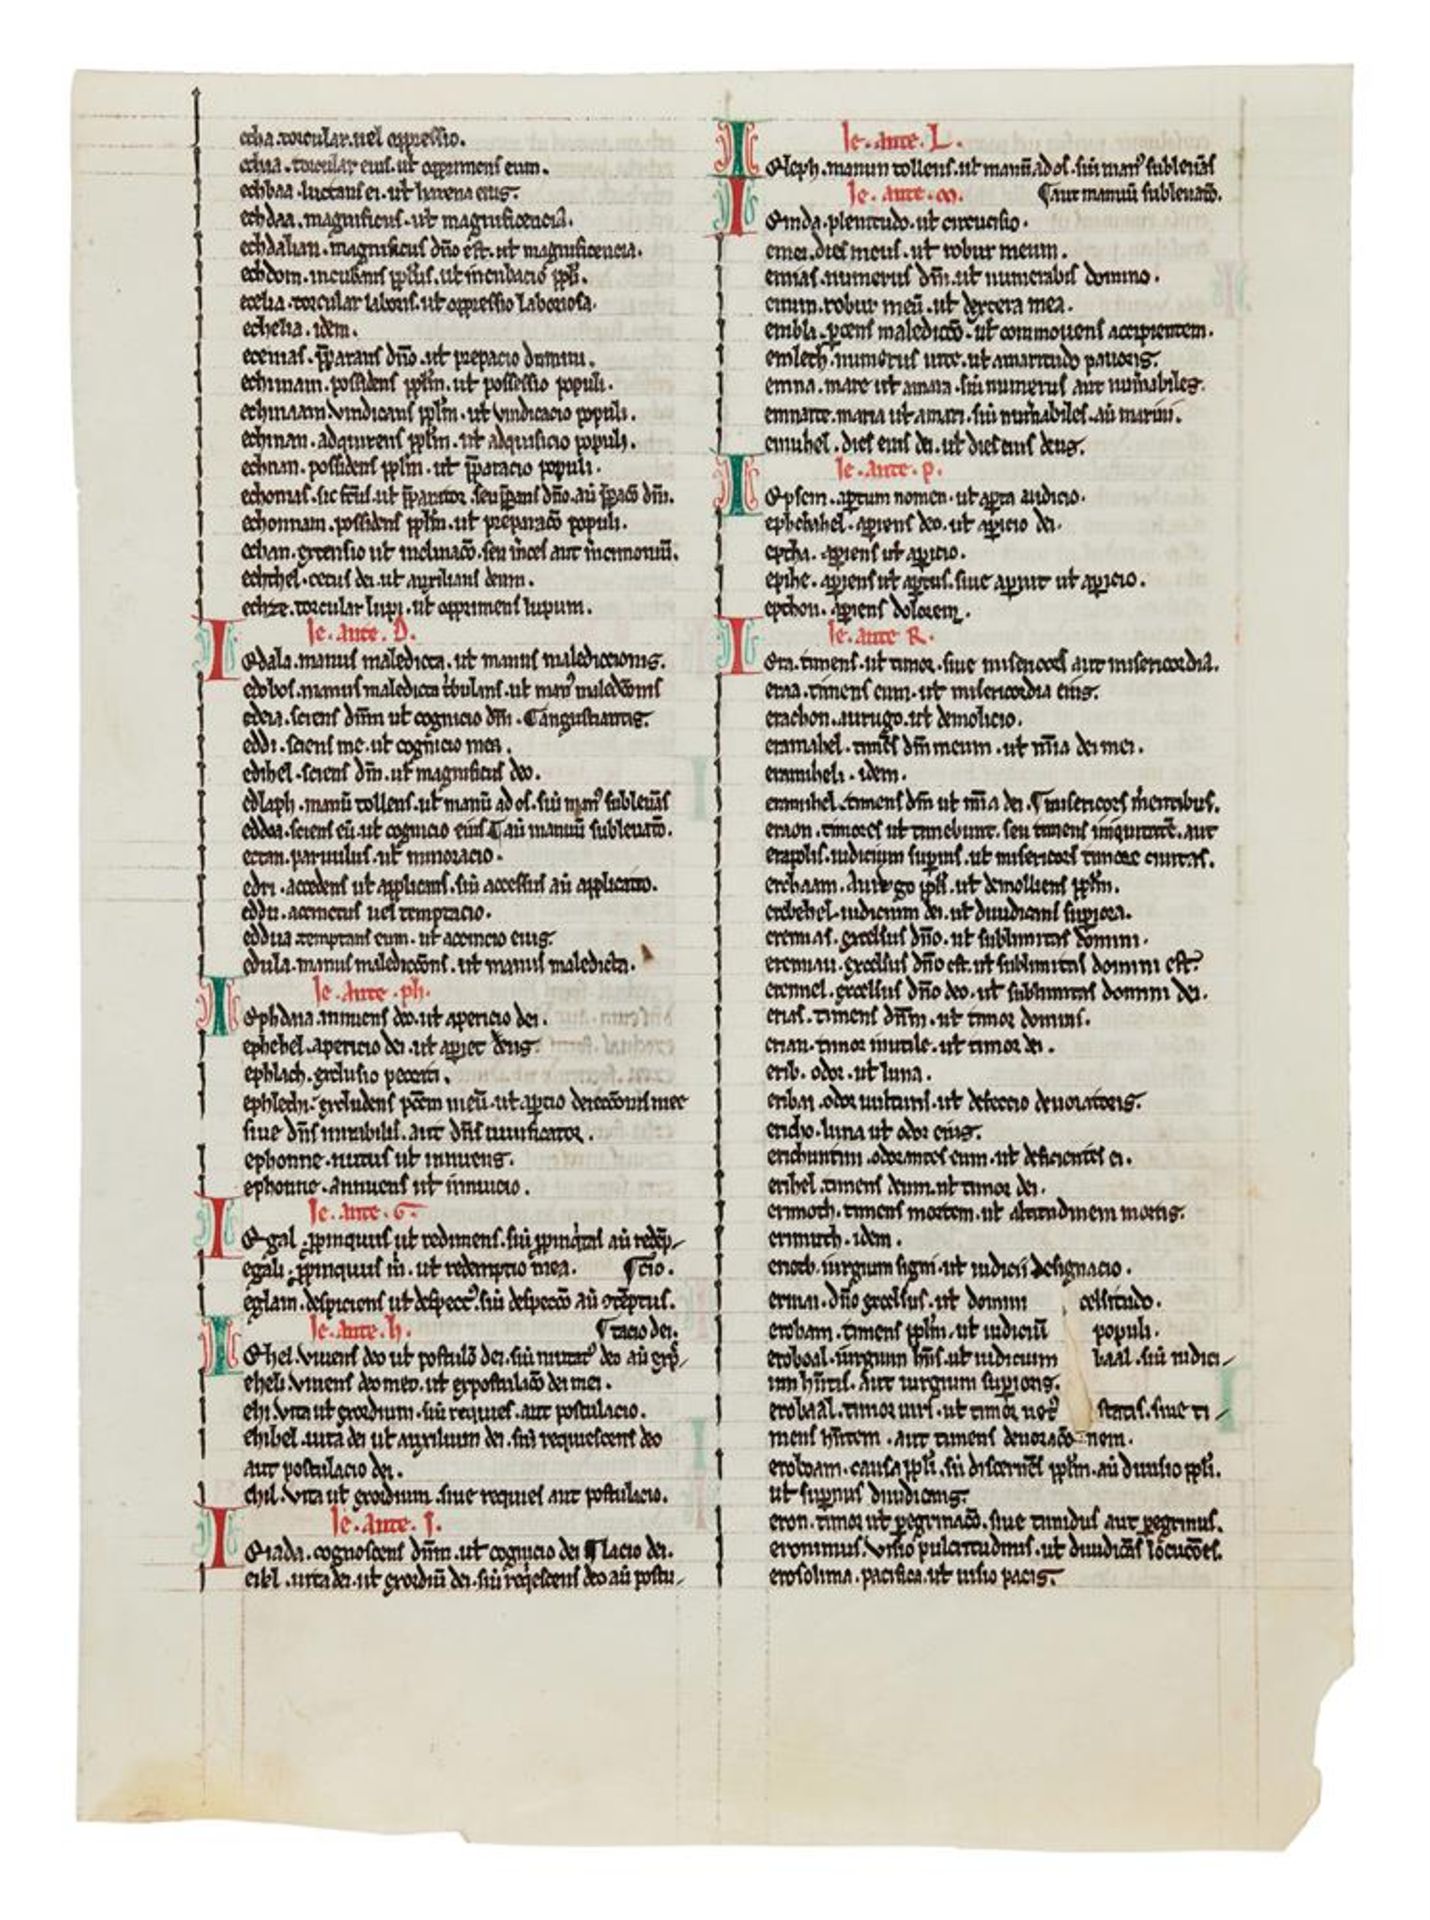 echa. torcular. uel oppressio.
echaa. torcular eius. ut opprimens eum.
echbaa. luctans ei. ut harena eius.
echdaa. magnificus. ut magnificencia.
echdalian. magnificus dño est. ut magnificencia.
echdom. incubans ipsius. ut incubacio
ecelia. torcular laboris. ut oppressio laboriosa.
echelia. idem.
ecenias. dño. ut prepacio domini.
echinam. possidens pplm. ut possessio populi.
echinaam vindicans pplm. ut vindicacio populi.
echinan. adquirens pplm. ut adquisicio populi.
echnan. possidens pplm. ut populi.
echonias. sic
echonnam. possidens pplm. ut populi.
echan. extensio ut
echthel. cetus dei. ut auxilians deum.
echze. torcular lupi. ut opprimens lupum.
Ie. ante. D.
Edala. manus maledicta. ut manus malediccionis.
edobos. manus maledicta ut
edeia. sciens dñm ut cognicio dñi. ¶ angustiantis.
eddi. sciens me. ut cognicio mea.
edihel. sciens dm. ut magnificus deo.
edlaph. manū tollens. ut manū ad os. siū subleuās
eddea. sciens eū. ut cognicio eius ¶ aū manuū subleuatō.
ectan. paruulus. ut minoracio.
edri. accedens ut applicans. siū accessus aū applicatio.
eddu. accinctus uel temptacio.
eddua temptans eum. ut accincio eius.
edula. manus malediccōnis. ut manus maledicta.
Ie. ante. ph.
Ephdaia. innuens deo. ut apericio dei.
ephebel. apericio dei. ut apiet deus.
ephlach. exclusio peccati.
ephlechi. excludens meū. ut
siue dñs mirabilis. aut dñs uiuificator.
ephonne. nutus ut innuens.
ephonne. annuens ut innucio.
Ie. ante. G
Egal. ppinquus ut redimens. siū aū redēp-
egali. ppinquus m̄. ut redemptio mea. ¶ cio.
eglam. despiciens ut despect⁹. siū despeccō aū
Ie. ante. h. ¶ tacio dei.
Ehel. viuens deo ut postulō dei. siū deo aū
eheli. viuens deo meo. ut expostulacō dei mei.
ehi. vita ut exordium. siū requies. aut postulacio.
ehibel. uita dei ut auxilium dei. siū requiescens deo
aut postulacio dei.
ehil. vita ut exordium. siue requies aut postulacio.
Ie. ante. I.
Eiada. cognoscens dñm. ut cognicio dei ¶ lacio dei.
eibl. uita dei. ut exordiū dei. siū deo aū postu-
Ie. ante. L.
Eleph. manum tollens. ut manū ad os. siū man⁹ subleuās
Ie. ante. m. ¶ aut manuū subleuatō.
Emda. plenitudo. ut circucisio.
emei. dies meus. ut robur meum.
emias. numerus dm̄. ut numerabis domino.
emim. robur meū. ut dextera mea.
embla. maledictō. ut commouens accipientem.
emlech. numerus iuste. ut amaritudo pauoris.
emna. mare ut amara. siū numerus aut
emnatte. maria ut amari. siū aū marini.
emuhel. dies eius dei. ut dies eius deus.
Ie. ante. p.
Epsem. aptum nomen. ut apta audicio.
ephchahel. apiens deo. ut apicio dei.
eptha. apiens ut apicio.
epihe. apiens ut aptus. siue apuit ut apicio.
epchon. apiens dolorem.
Ie. ante R.
Era. timens. ut timor. siue misericors aut misericordia.
eraa. timens eum. ut misericordia eius.
erachon. aurugo. ut demolicio.
eramahel. timēs dm̄ meum. ut mīa dei mei.
eramiheli. idem.
eramihel. timens dm̄ ut mīa dei. ¶ misericors
eraon. timores ut timebunt. seu timens iniquitatē. aut
erapolis. iudicium supius. ut misericors timore ciuitas.
erchaam. Aurugo ut demolliens pplm.
erebehel. iudicium dei. ut diiudicans supiora.
eremias. excelsus dño. ut sublimitas domini.
eremiau. excelsus dño est. ut sublimitas domini est.
eremiel. excelsus dño deo. ut sublimitas domini dei.
erias. timens dñm. ut timor domini.
eriau. timor inutile. ut timor dei.
erib. odor. ut luna.
eribai. odor uulturis. ut defeccio deuoratoris.
ericho. luna ut odor eius.
erichuntini. odorantes eum. ut deficientes ei.
erihel. timens deum. ut timor dei.
erimoth. timens mortem. ut altitudinem mortis.
erimuth. idem.
eriob. iurgium signi. ut iudicii designacio.
ermai. dño excelsus. ut domini celsitudo.
erobam. timens pplm. ut iudiciū populi.
eroboal. iurgium hñs. ut iudicium baal. siū iudici-
um hñtis. aut iurgium supioris.
erobaal. timor uiri. ut timor uet⁹ statis. siue ti-
mens hñtem. aut timens deuoracō nem.
eroboam. causa ppli. siū discernēs pplm. aū diuisio ppli.
ut supnus diiudicans.
eron. timor ut pegrinacō. siue timidus aut pegrinus.
eronimus. visio pulcritudinis. ut diiudicās locucōes.
erosolima. pacifica. ut uisio pacis.